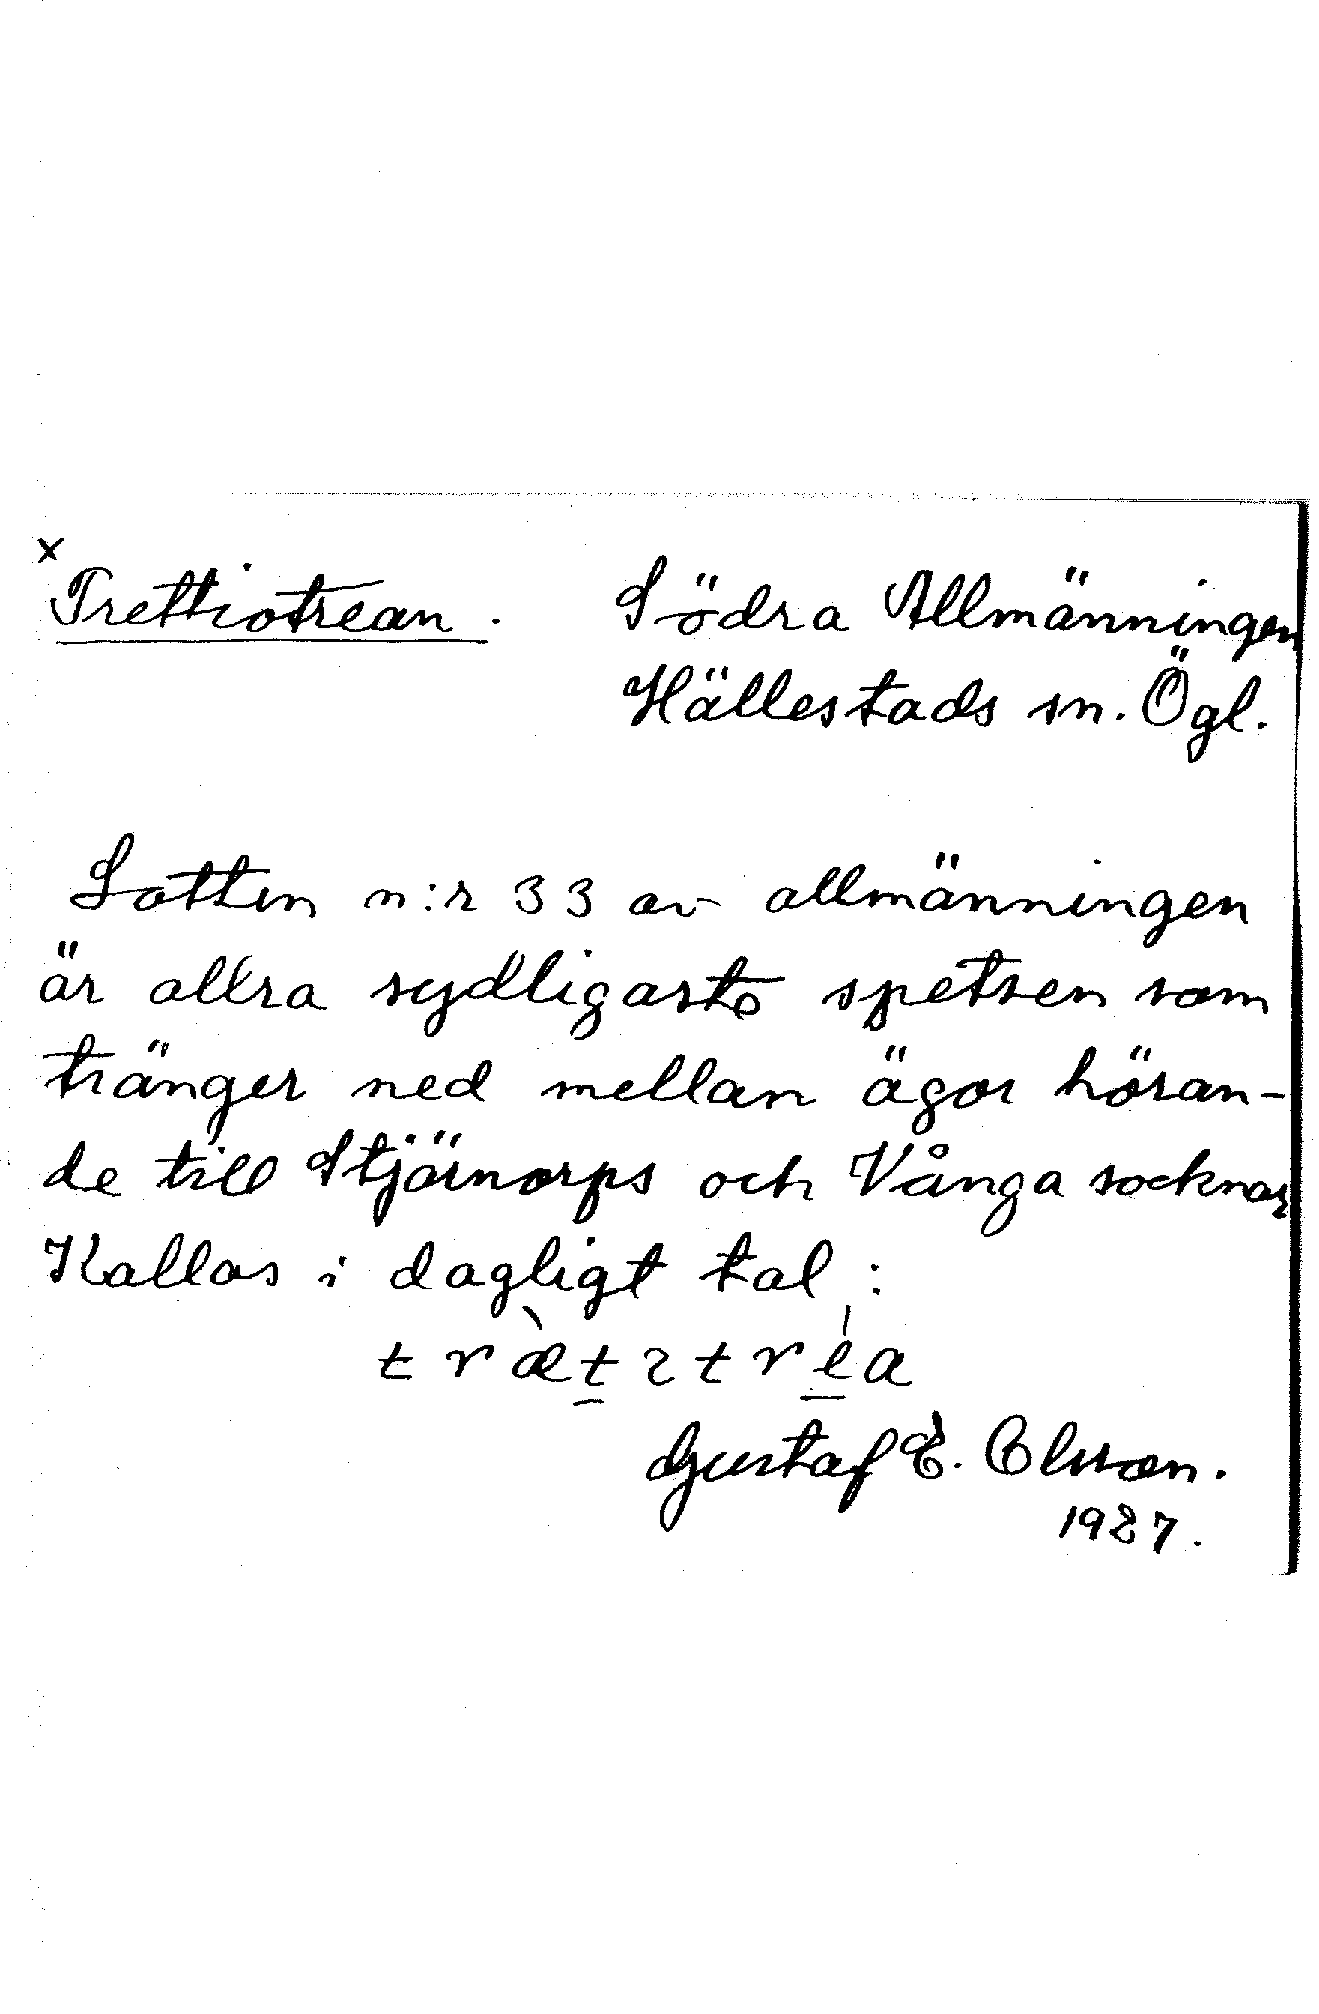 x
Trettiotrean. Södra Allmänningen
Hällestads sn. Ögl.
Lotten n:r 33 av allmänningen
är allra sydligaste spetsen som
tränger ned mellan ägor höran-
de till Stjärnorps och Vånga socknar
Kallas i dagligt tal:
Gustaf E. Olsson.
1927.